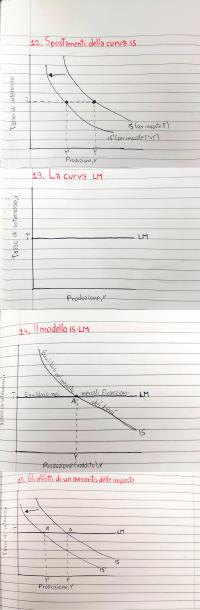 12. Spostamenti della curva IS
Tasso di interesse
IS (con imposte T)
IS' (con imposte T'>T)
Y' Y
Produzione, Y
13. La curva LM
Tasso di interesse, i
ī LM
Produzione, Y
14. Il modello IS-LM
Equilibrio nei mercati finanziari
LM
A
dei beni
IS
Y
Produzione (reddito), Y
15. Gli effetti di un aumento delle imposte
Tasso di interesse
A' A
LM
IS
IS'
Y' Y
Produzione, Y